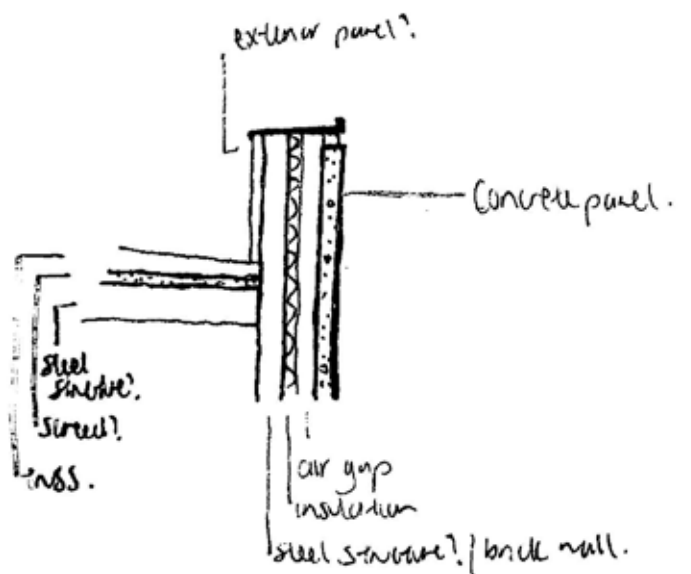 exterior panel?
Concrete panel.
steel
structure?
screed?
ins.
air gap
insulation
steel structure? / brick wall.